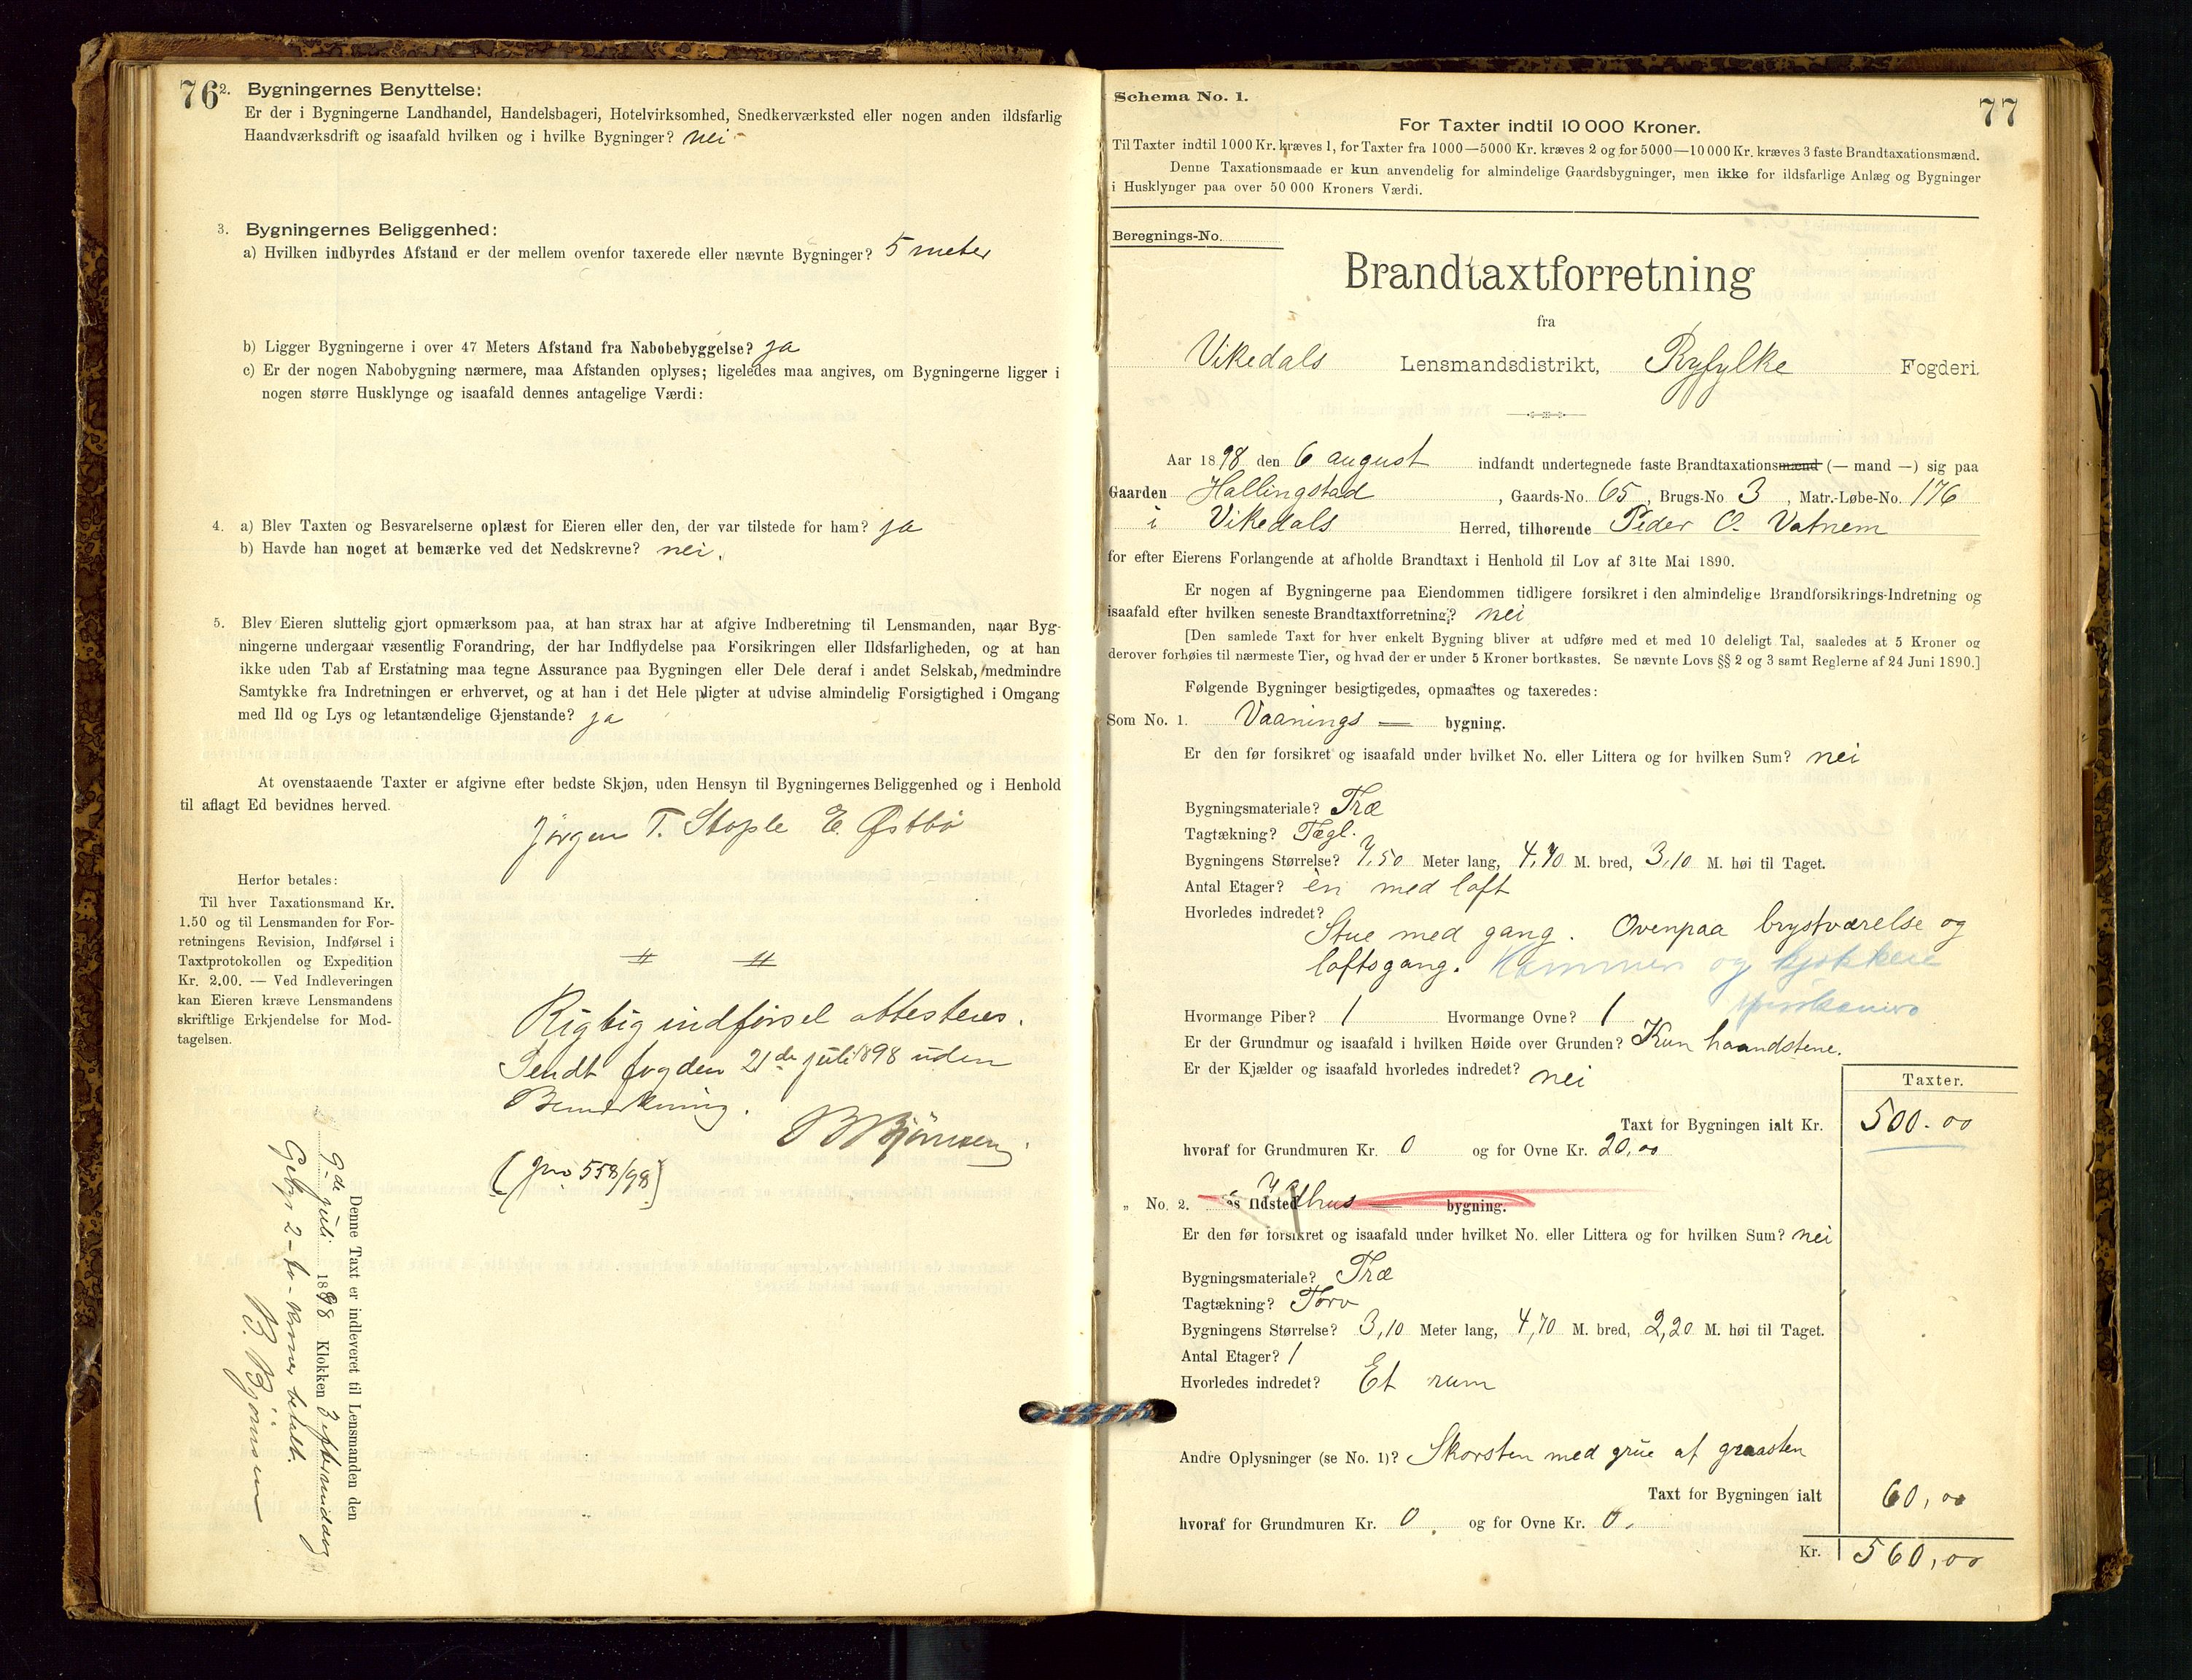 76
2. Bygningernes Benyttelse:
Er der i Bygningerne Landhandel, Handelsbageri, Hotelvirksomhed, Snedkerværksted eller nogen anden ildsfarlig
Haandværksdrift og isaafald hvilken og i hvilke Bygninger? nei
3. Bygningernes Beliggenhed:
a) Hvilken indbyrdes Afstand er der mellem ovenfor taxerede eller nævnte Bygninger? 5 meter
b) Ligger Bygningerne i over 47 Meters Afstand fra Nabobebyggelse? ja
c) Er der nogen Nabobygning nærmere, maa Afstanden oplyses; ligeledes maa angives, om Bygningerne ligger i
nogen større Husklynge og isaafald dennes antagelige Værdi:
4. a) Blev Taxten og Besvarelserne oplæst for Eieren eller den, der var tilstede for ham? ja
b) Havde han noget at bemærke ved det Nedskrevne? nei.
5. Blev Eieren sluttelig gjort opmærksom paa, at han strax har at afgive Indberetning til Lensmanden, naar Byg-
ningerne undergaar væsentlig Forandring, der har Indflydelse paa Forsikringen eller Ildsfarligheden, og at han
ikke uden Tab af Erstatning maa tegne Assurance paa Bygningen eller Dele deraf i andet Selskab, medmindre
Samtykke fra Indretningen er erhvervet, og at han i det Hele pligter at udvise almindelig Forsigtighed i Omgang
med Ild og Lys og letantændelige Gjenstande? ja
At ovenstaaende Taxter er afgivne efter bedste Skjøn, uden Hensyn til Bygningernes Beliggenhed og i Henhold
til aflagt Ed bevidnes herved.
Jørgen T. Stople E. Østbø
Herfor betales:
Til hver Taxationsmand Kr.
1.50 og til Lensmanden for For-
retningens Revision, Indførsel i
Taxtprotokollen og Expedition
Kr. 2.00. — Ved Indleveringen
kan Eieren kræve Lensmandens
skriftlige Erkjendelse for Mod-
tagelsen.
Rigtig indførsel attesteres.
Sendt fogden 21de juli 1898 uden
Bemærkning.
B Bjørnsen
(Jno 558/98)
Denne Taxt er indleveret til Lensmanden den
9de juli 1898 Klokken 3 eftermiddag
Gebyr 2 - to - kroner betalt.
B. Bjørnsen
77
Schema No. 1.
For Taxter indtil 10 000 Kroner.
Til Taxter indtil 1000 Kr. kræves 1, for Taxter fra 1000—5000 Kr. kræves 2 og for 5000—10 000 Kr. kræves 3 faste Brandtaxationsmænd.
Denne Taxationsmaade er kun anvendelig for almindelige Gaardsbygninger, men ikke for ildsfarlige Anlæg og Bygninger
i Husklynger paa over 50 000 Kroners Værdi.
Beregnings-No.
Brandtaxtforretning
fra
Vikedals Lensmandsdistrikt, Ryfylke Fogderi.
Aar 1898 den 6 august indfandt undertegnede faste Brandtaxationsmænd (— mand —) sig paa
Gaarden Hallingstad, Gaards-No. 65, Brugs-No 3, Matr.-Løbe-No. 176
i Vikedals Herred, tilhørende Peder O. Vatnem
for efter Eierens Forlangende at afholde Brandtaxt i Henhold til Lov af 31te Mai 1890.
Er nogen af Bygningerne paa Eiendommen tidligere forsikret i den almindelige Brandforsikrings-Indretning og
isaafald efter hvilken seneste Brandtaxtforretning? nei
[Den samlede Taxt for hver enkelt Bygning bliver at udføre med et med 10 deleligt Tal, saaledes at 5 Kroner og
derover forhøies til nærmeste Tier, og hvad der er under 5 Kroner bortkastes. Se nævnte Lovs §§ 2 og 3 samt Reglerne af 24 Juni 1890.]
Følgende Bygninger besigtigedes, opmaaltes og taxeredes:
Som No. 1. Vaanings — bygning.
Er den før forsikret og isaafald under hvilket No. eller Littera og for hvilken Sum? nei
Bygningsmateriale? Træ
Tagtækning? Tægl.
Bygningens Størrelse? 7,50 Meter lang, 4,70 M. bred, 3,10 M. høi til Taget.
Antal Etager? èn med loft
Hvorledes indredet? Stue med gang. Ovenpaa brystværelse og
loftsgang. Kammer og kjøkken
Hvormange Piber? 1 Hvormange Ovne? 1
Er der Grundmur og isaafald i hvilken Høide over Grunden? Kun haandstene.
Er der Kjælder og isaafald hvorledes indredet? nei
Taxter.
Taxt for Bygningen ialt Kr. 500.00
hvoraf for Grundmuren Kr. 0 og for Ovne Kr. 20,00
" No. 2. Ildhus — bygning.
Er den før forsikret og isaafald under hvilket No. eller Littera og for hvilken Sum? nei
Bygningsmateriale? Træ
Tagtækning? Torv
Bygningens Størrelse? 3,10 Meter lang, 4,70 M. bred, 2,20 M. høi til Taget.
Antal Etager? 1
Hvorledes indredet? Et rum
Andre Oplysninger (se No. 1)? Skorsten med grue af graasten
Taxt for Bygningen ialt 60,00
hvoraf for Grundmuren Kr. 0. og for Ovne Kr. 0.
Kr. 560,00